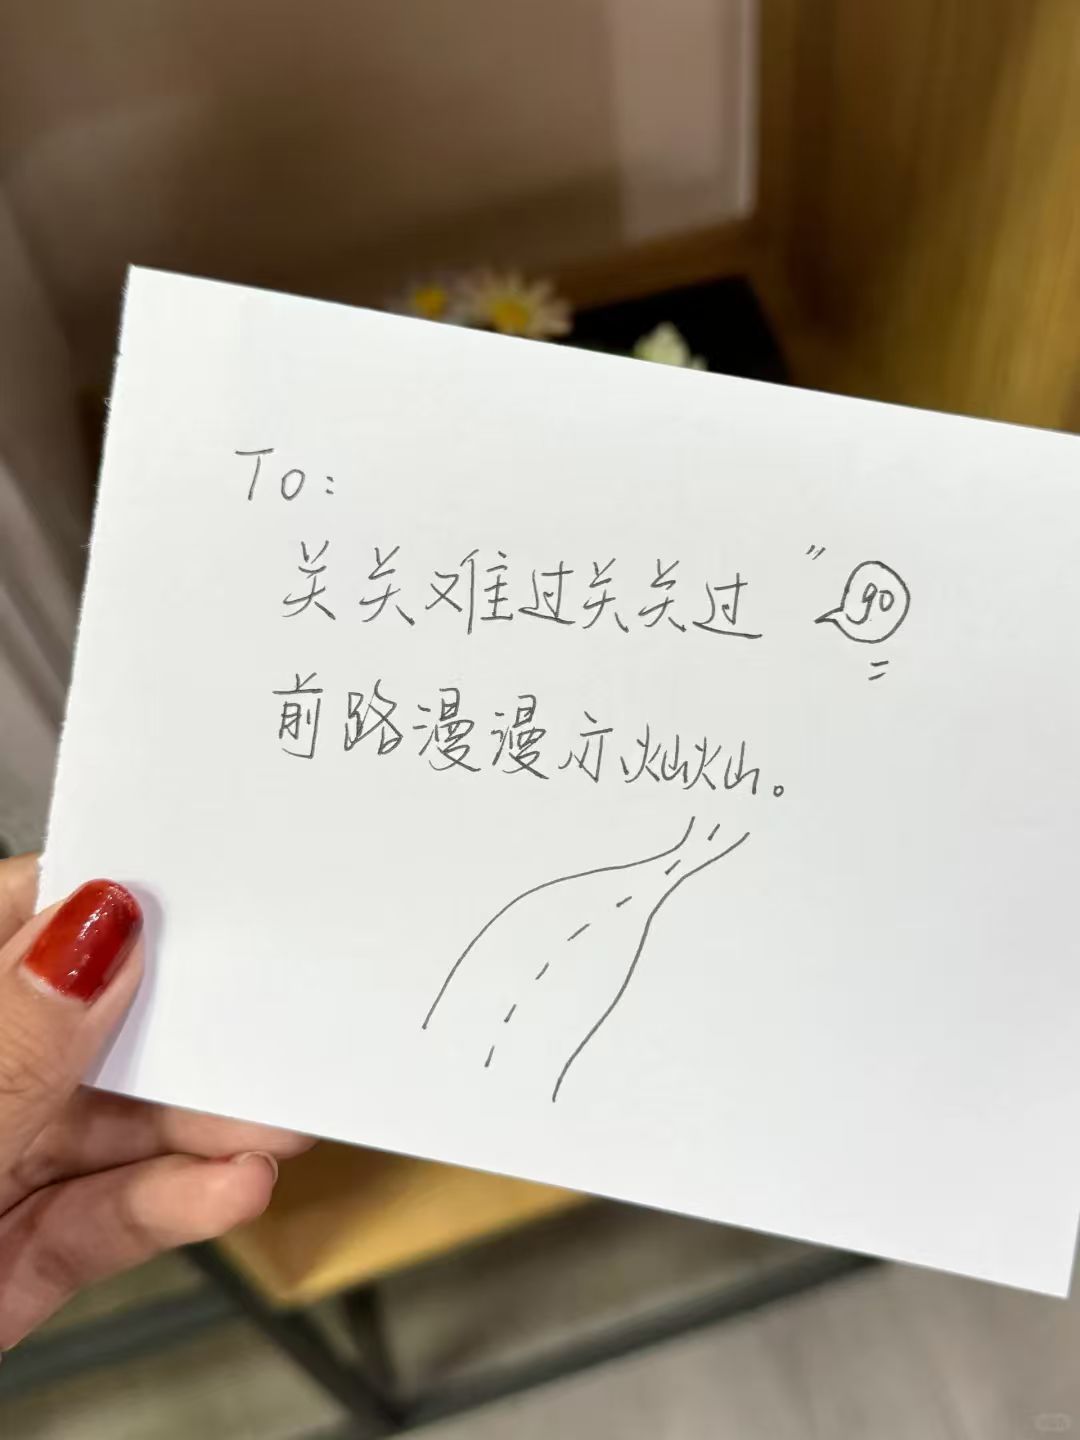 To:
关关难过关关过 go
前路漫漫亦灿灿。